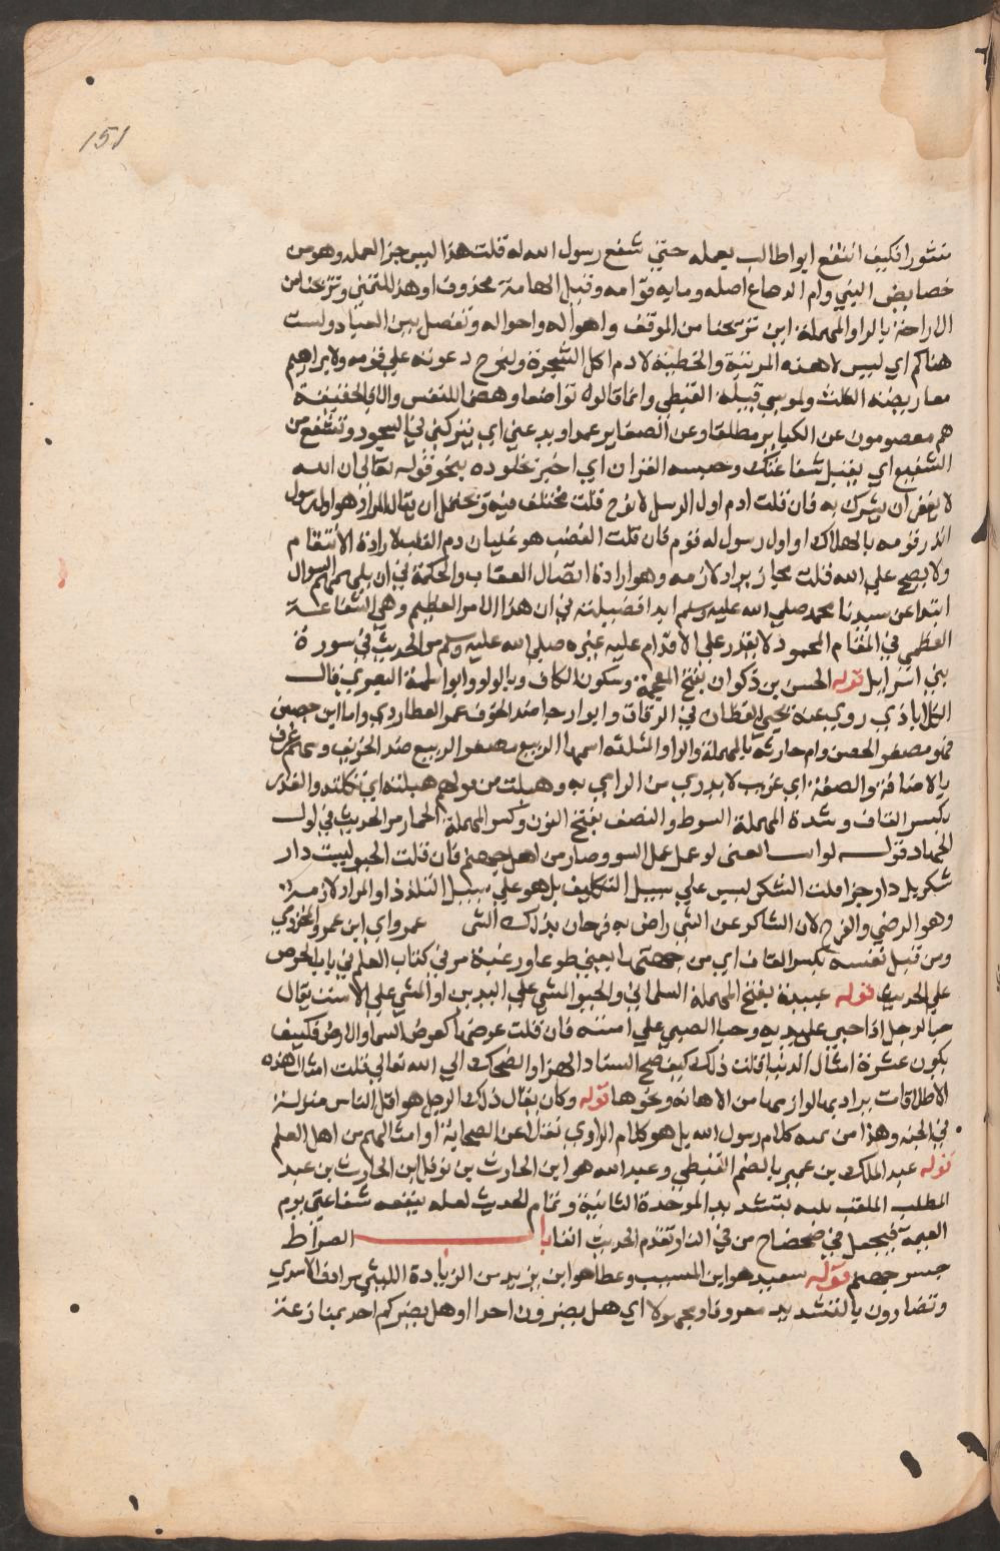 151
منثورا فكيف انتفع ابو اطالب بعمله حتي شفع رسول الله له قلت هذا ليس جزا لعمله وهو من
خصايص النبي وام الدماغ اصله وما به قوامه وقيل الهامة محذوف او هذ للتمني وتزيحنا من
الاراحة بالرا والمهملة اي تزيحنا من الموقف واهواله واحواله وتفصل بين العباد ولست
هناكم اي ليس لي هذه المرتبة والخطيئة لادم اكل الشجرة ولنوح دعوته علي قومه ولابراهيم
معاريضه الثلث ولموسي قتيله القبطي وانما قالوا تواضعا وهضما للنفس والا في الحقيقة
هم معصومون عن الكباير مطلقا وعن الصغاير عمدا ويدعني اي يتركني في السجود وتشفع من
الشفيع اي يقبل شفاعتك وحبسه القران اي اخبر بخلوده بنحو قوله تعالي ان الله
لا يغفر ان يشرك به فان قلت ادم اول الرسل لا نوح قلت مختلف فيه ويحتمل ان يقال المراد هو اول رسول
انذر قومه بالهلاك او اول رسول له قوم فان قلت الغضب هو غليان دم القلب لارادة الانتقام
ولا يصح علي الله قلت مجاز يراد لازمه وهو ارادة ايصال العقاب والحكمة في ان يلهمهم السوال
ابتدا عن سيدنا محمد صلي الله عليه وسلم ابدا فضيلته في ان هذا الامر العظيم وهي الشفاعة
العظمي في المقام المحمود لا يقدر علي الاقدام عليه غيره صلي الله عليه وسلم مر الحديث في سورة
بني اسرايل قوله الحسن بن ذكوان بفتح المعجمة وسكون الكاف وبالواو وابو سلمة البصري قال
الكلاباذي روي عنه يحيي القطان في الرقاق وابو رجا ضد الخوف عمر العطاردي واما ابن حصين
فهو مصغر الحصن وام حارثة بالمهملة والرا والمثلثة اسمها الربيع مصغر الربيع ضد الخريف وسهم غرب
بالاضافة والصفة اي غرب لا يدري من الرامي به وهبلت من قولهم هبلته اي ثكلته والقد
بكسر القاف وشدة المهملة السوط والنصف بفتح النون وكسر المهملة الخمار مر الحديث في اول
الجهاد قوله لو اسا يعني لو عمل عمل السو وصار من اهل جهنم فان قلت الجنة ليست دار
شكر بل دار جزا قلت الشكر ليس علي سبيل التكليف بل هو علي سبيل التلذذ او المراد لازمه
وهو الرضي والفرح لان الشاكر عن الشي راض به فرحان بذلك الشي عمرو اي ابن عمرو المخزومي
ومن قبل نفسه بكسر القاف اي من جهتها يعني طوعا ورغبة مر في كتاب العلم في باب الحرص
علي الحديث قوله عبيدة بفتح المهملة السلماني والحبو المشي علي اليدين او المشي علي الاست يقال
حبا الرجل اذا حبي علي يديه وحبا الصبي علي استه فان قلت عرضها كعرض السما والارض فكيف
يكون عشرة امثال الدنيا قلت ذلك كيف صح اسناد الهزا والضحك الي الله تعالي قلت امثال هذه
الاطلاقات يراد بها لوازمها من الاهانة ونحوها قوله وكان يقال ذلك الرجل هو اقل الناس منزلة
في الجنة وهذا من تتمة كلام رسول الله بل هو كلام الراوي نقلا عن الصحابة او امثالهم من اهل العلم
قوله عبد الملك بن عمير بالضم القبطي وعبد الله هو ابن الحارث بن نوفل ابن الحارث بن عبد
المطلب الملقب ببه بتشديد الموحدة الثانية وتمام الحديث لعله ينفعه شفاعتي يوم
القيمة فيجعل في ضحضاح من في النار وتقدم الحديث انفا باب الصراط
جسر جهنم قوله سعيد هو ابن المسيب وعطا هو ابن يزيد من الزيادة الليثي مرادف الاسدي
وتضارون بالتشديد معروفا ومجهولا اي هل يضرون احدا او هل يضركم احد بمنازعة